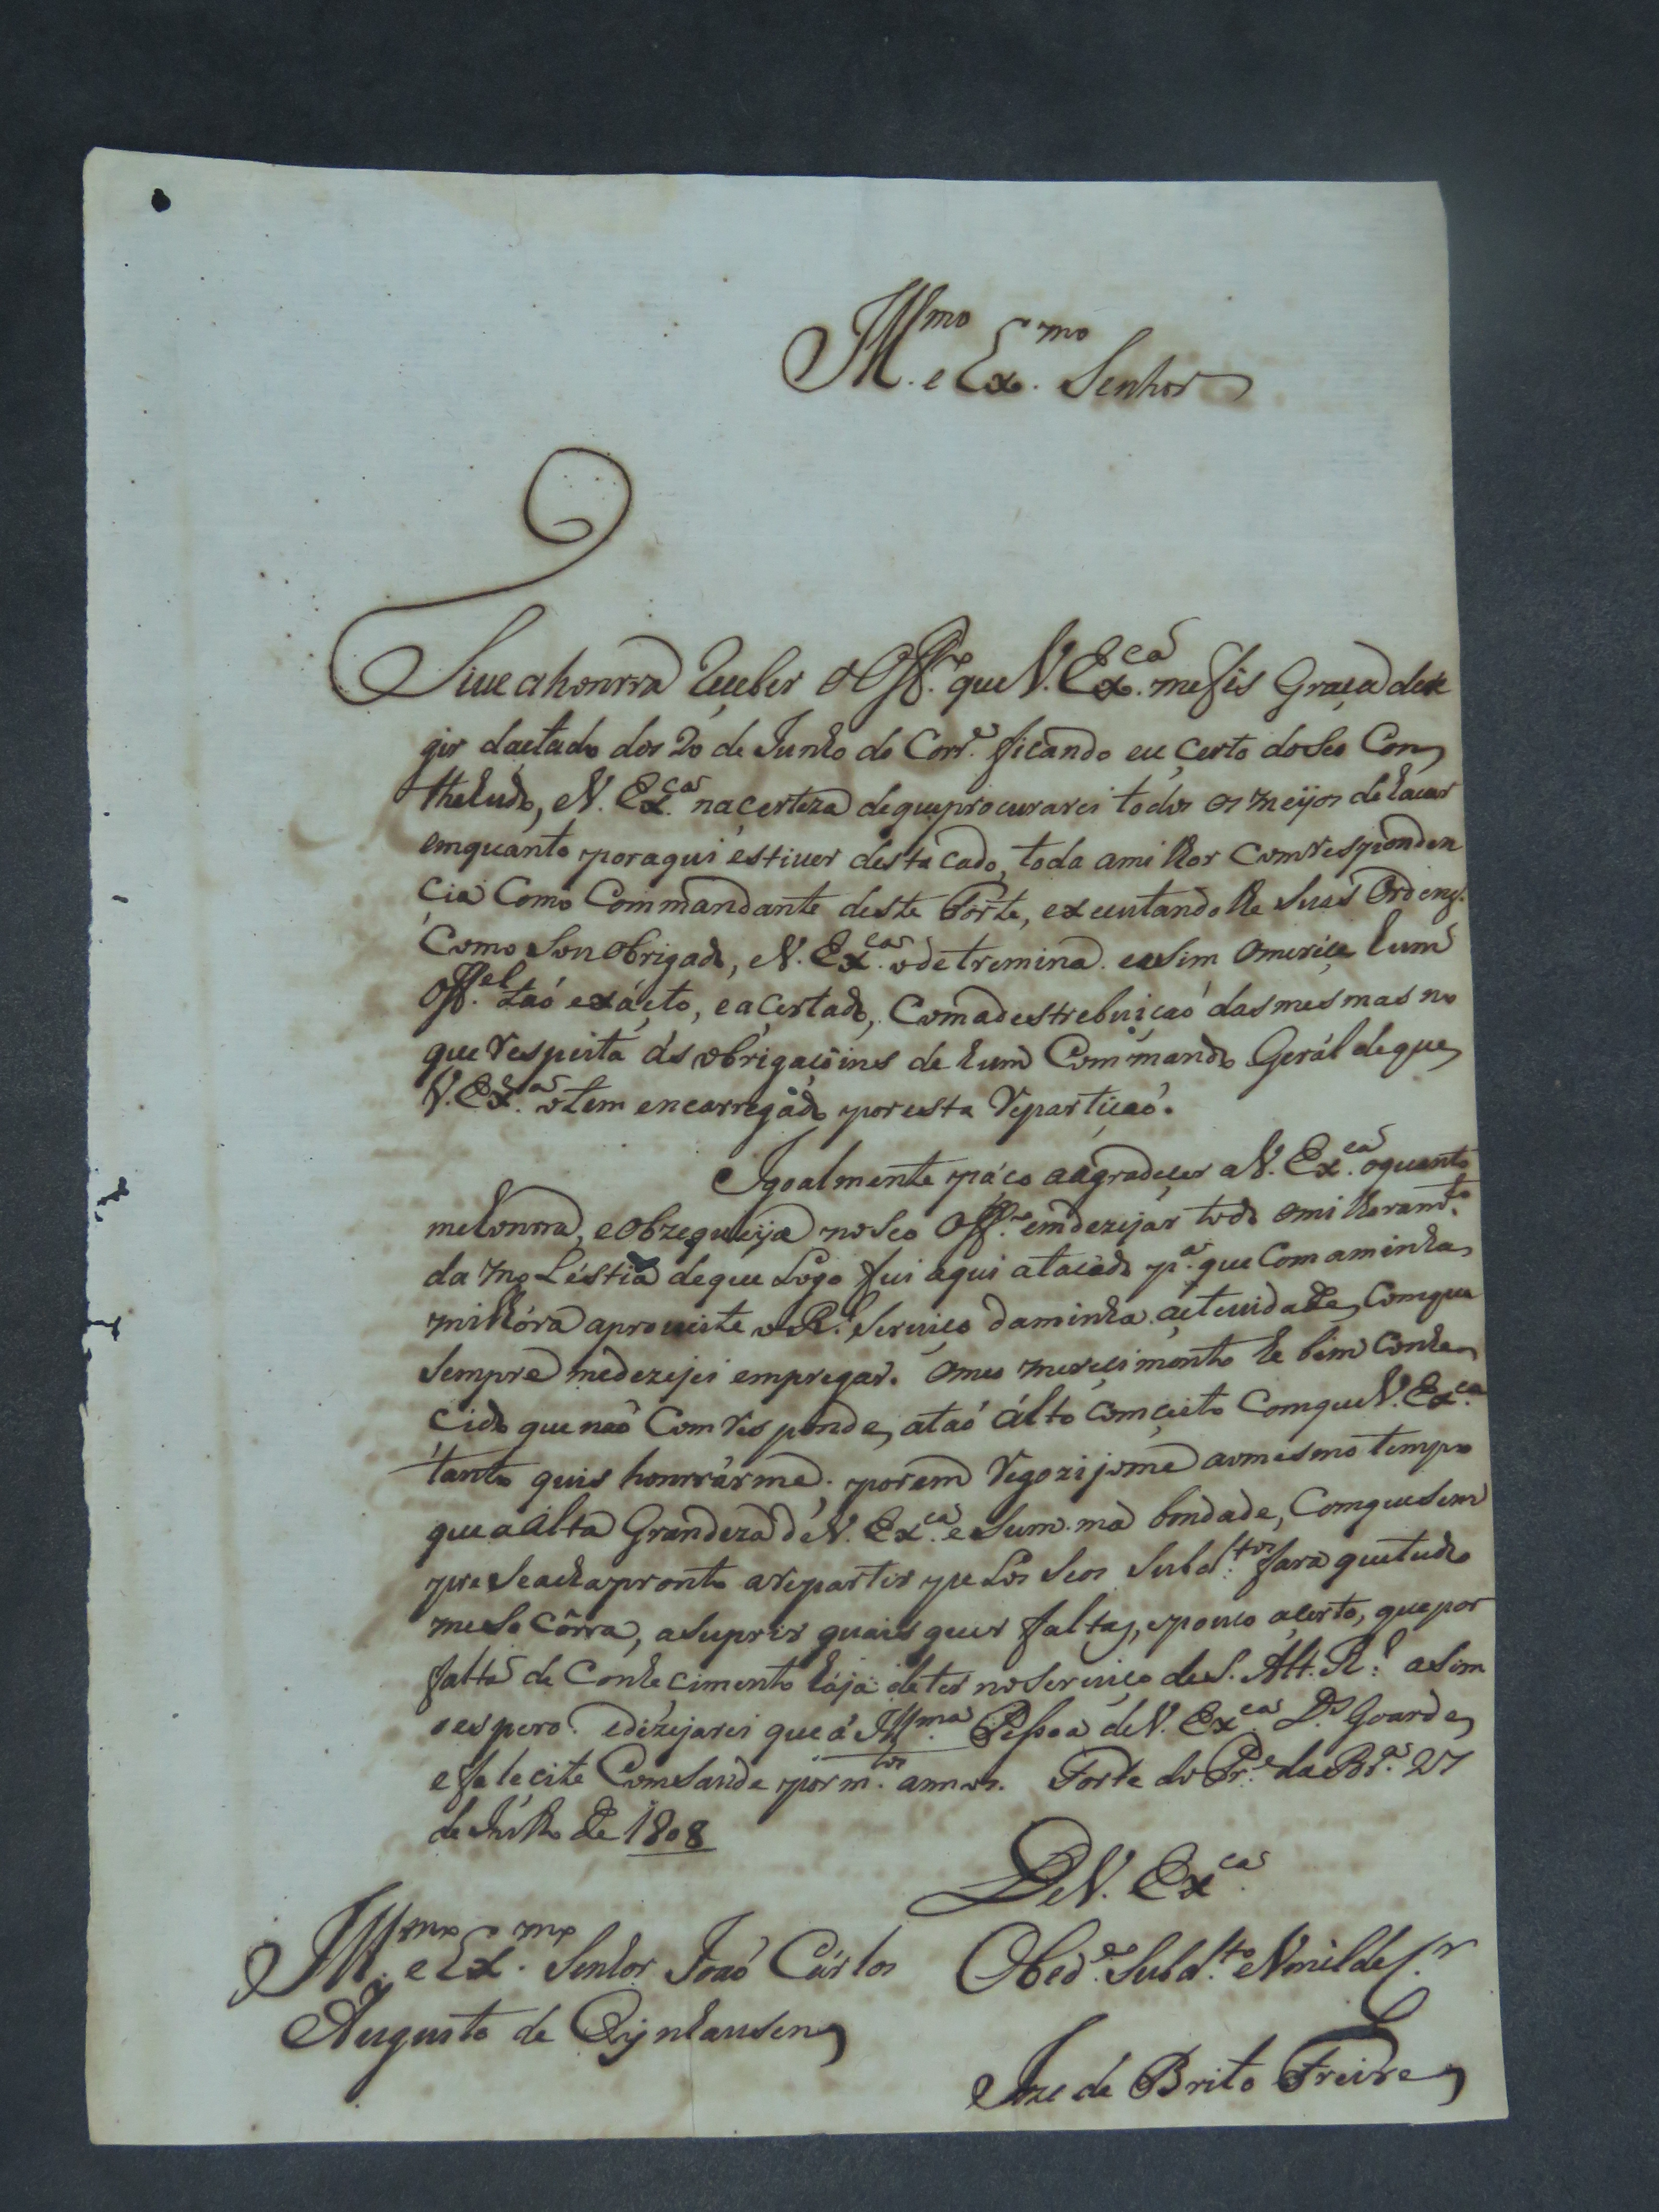 Ill.mo e Ex.mo Senhor
Tive a honrra Reçeber o Off.o que V. Ex.ca me fis Graça deri
gir dactado dos 20 de Junho do Corr.e ficando eu çerto do seo Con
theludo, e V. Ex.ca na certeza de que procurarei todos os meijos de
emquanto por aqui estiver destacado, toda a milhor Comrresponden
cia Como Commandante deste Forte, executandolhe suas Ordens.
Como Sou obrigado, e V. Ex.ca o detremina. easim o meriçe hum
Off.el taó exácto, e açertado, Com a destrebuiçaó das mesmas no
que Respeita ás obrigaçõins de hum Commando Gerál de que
V. Ex.ca o tem encarregádo por esta Repartiçaó.
Igoalmente páço aágradeçer a V. Ex.ca o quanto
me honrra, e obzequeija no seo Off.o em dezejar todo o milhoram.to
da moléstia de que Logo fui aqui atacado p.a que Com a minha
milhóra aproveite o R.l Serviço da minha actevidade, Com que
sempre me dezejei empregar. O meo mereçimento he bem Conhe
cido que não Comrresponde, a taó álto Comçeito Com que V. Ex.ca
tanto quis honrrárme; porem Regozijome ao mesmo tempo
que a alta Grandeza de V. Ex.ca e Summa bondade, Com que sem
pre se acha pronto a repartir pelos seos Subd.tos fará que tudo
me socôrra, a suprir quais quer faltas, e pouco açerto, que por
falta de Conhecimento haja de ter no serviço de S. Alt. R.l asim
o espero. e dizejarei que á Ill.ma Pessoa de V. Ex.ca D.s Goarde
e felecite Com saude por m.tos annos. Forte do Pr.e da Br.a 27
de Julho de 1808
De V. Ex.ca
Ill.mo e Ex.mo Senhor Joaó Cárlos
Augusto de Oijnhausen
Obed.e Subd.to e Umilde S.r
Joze de Brito Freire